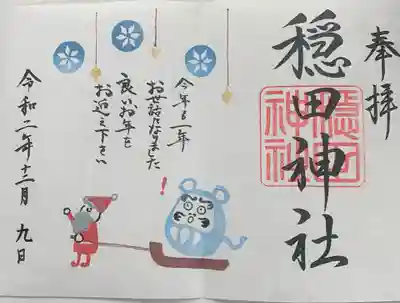 奉拝
穏田神社
穏田
神社
今年も一年
お世話になりました!
良いお年を
お迎え下さい
令和二年十二月九日